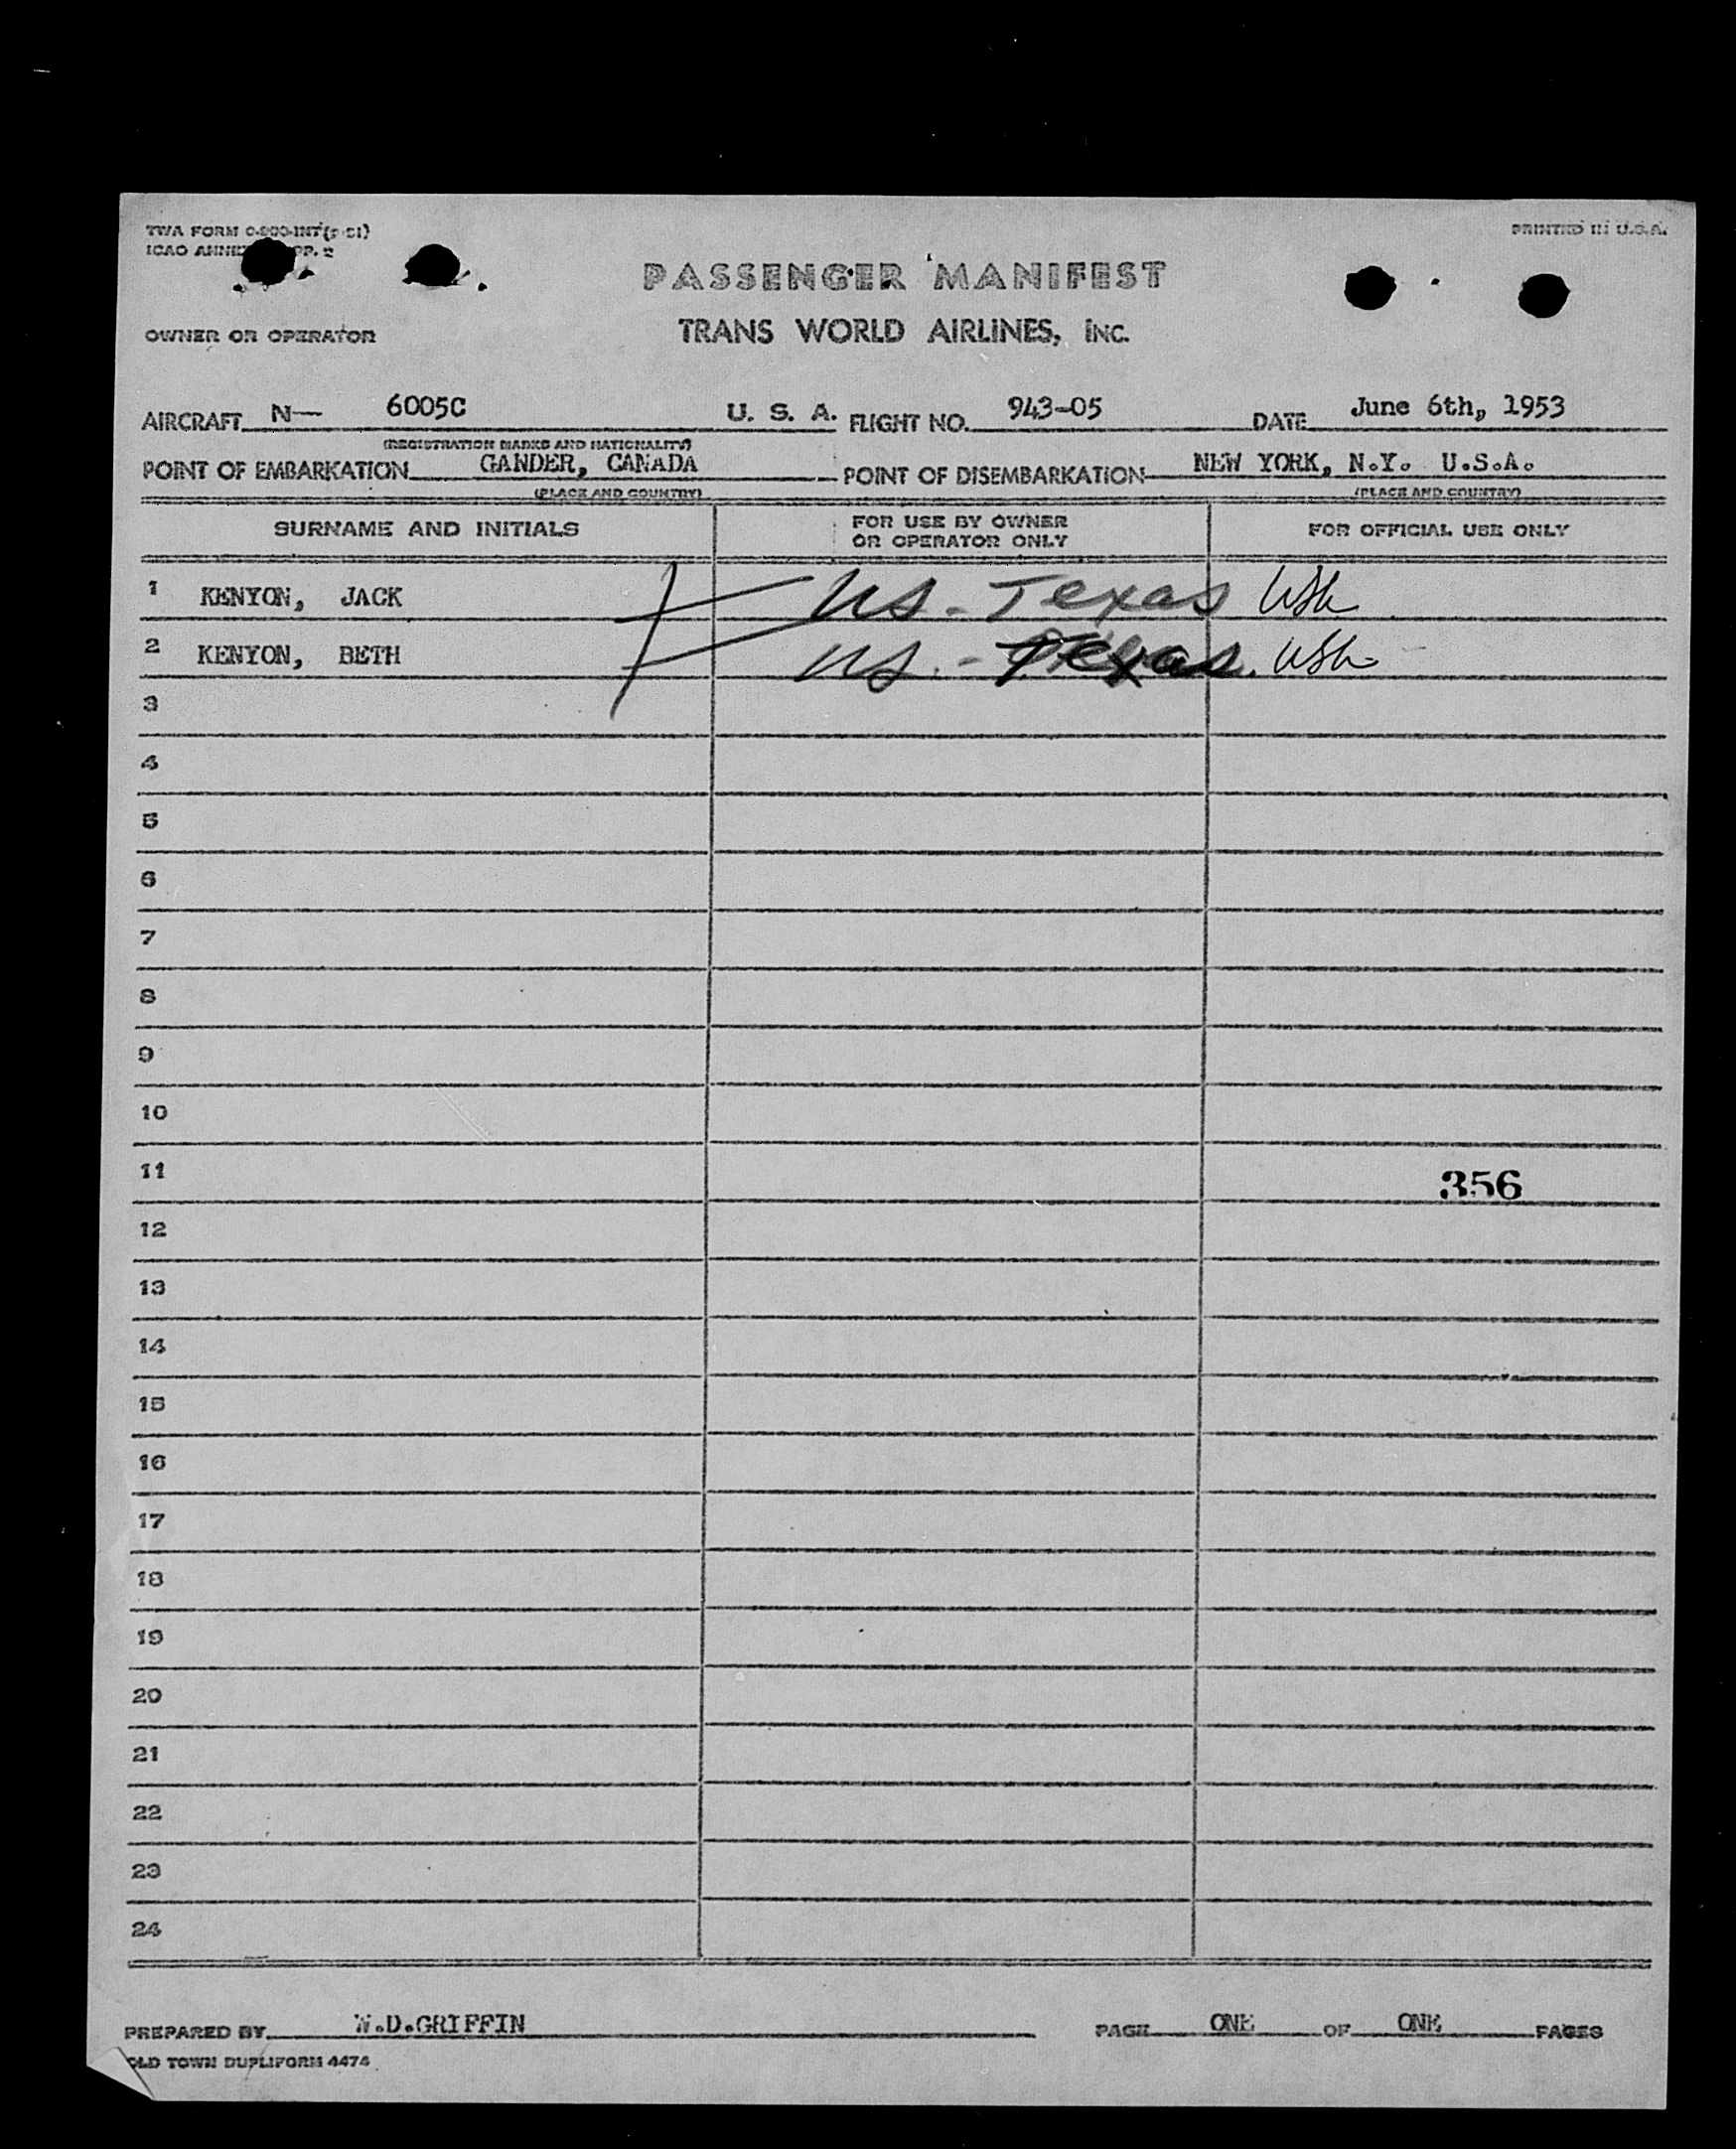 TWA FORM 0-900-INT
PRINTED IN U.S.A.
ICAO PP. 2
PASSENGER MANIFEST
OWNER OR OPERATOR
TRANS WORLD AIRLINES, INC.
AIRCRAFT N— 6005C U. S. A. FLIGHT NO. 943-05 DATE June 6th, 1953
(REGISTRATION MARKS AND NATIONALITY)
POINT OF EMBARKATION GANDER, CANADA POINT OF DISEMBARKATION NEW YORK, N.Y. U.S.A.
(PLACE AND COUNTRY) (PLACE AND COUNTRY)
SURNAME AND INITIALS FOR USE BY OWNER OR OPERATOR ONLY FOR OFFICIAL USE ONLY
1 KENYON, JACK US - Texas
2 KENYON, BETH US. - Texas.
3
4
5
6
7
8
9
10
11 356
12
13
14
15
16
17
18
19
20
21
22
23
24
PREPARED BY W.D.GRIFFIN PAGE ONE OF ONE PAGES
OLD TOWN DUPLIFORM 4474